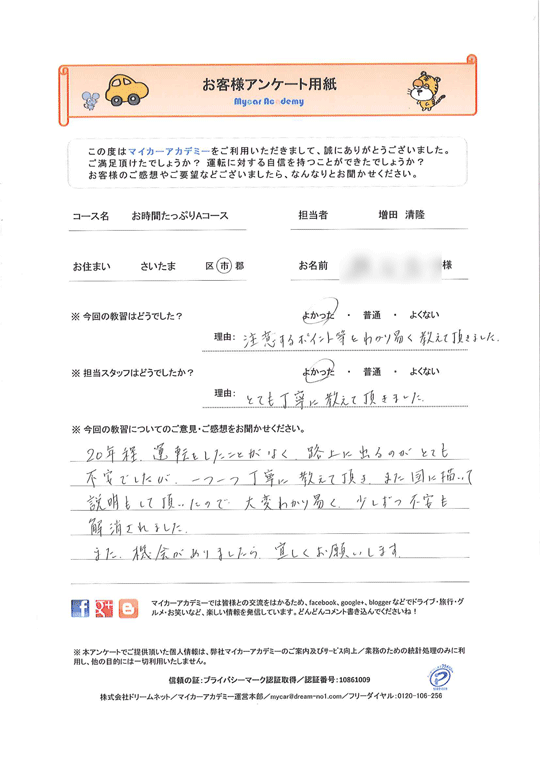 お客様アンケート用紙
Mycar Academy
この度はマイカーアカデミーをご利用いただきまして、誠にありがとうございました。
ご満足頂けたでしょうか？ 運転に対する自信を持つことができたでしょうか？
お客様のご感想やご要望などございましたら、なんなりとお聞かせください。
コース名 お時間たっぷりAコース 担当者 増田 清隆
お住まい さいたま 区 市 郡 お名前 様
※ 今回の教習はどうでした？ よかった ・ 普通 ・ よくない
理由： 注意するポイント等をわかり易く教えて頂きました。
※ 担当スタッフはどうでしたか？ よかった ・ 普通 ・ よくない
理由： とても丁寧に教えて頂きました。
※ 今回の教習についてのご意見・ご感想をお聞かせください。
20年程、運転をしたことがなく、路上に出るのがとても
不安でしたが、一つ一つ丁寧に教えて頂き、また図に描いて
説明もして頂いたので、大変わかり易く、少しずつ不安も
解消されました。
また、機会がありましたら、宜しくお願いします。
マイカーアカデミーでは皆様との交流をはかるため、facebook、google+、bloggerなどでドライブ・旅行・グ
ルメ・お笑いなど、楽しい情報を発信しています。どんどんコメント書き込んでくださいね！
※ 本アンケートでご提供頂いた個人情報は、弊社マイカーアカデミーのご案内及びサービス向上／業務のための統計処理のみに利
用し、他の目的には一切利用いたしません。
信頼の証：プライバシーマーク認証取得／認証番号：10861009
株式会社ドリームネット／マイカーアカデミー運営本部／mycar@dream-no1.com／フリーダイヤル：0120-106-256